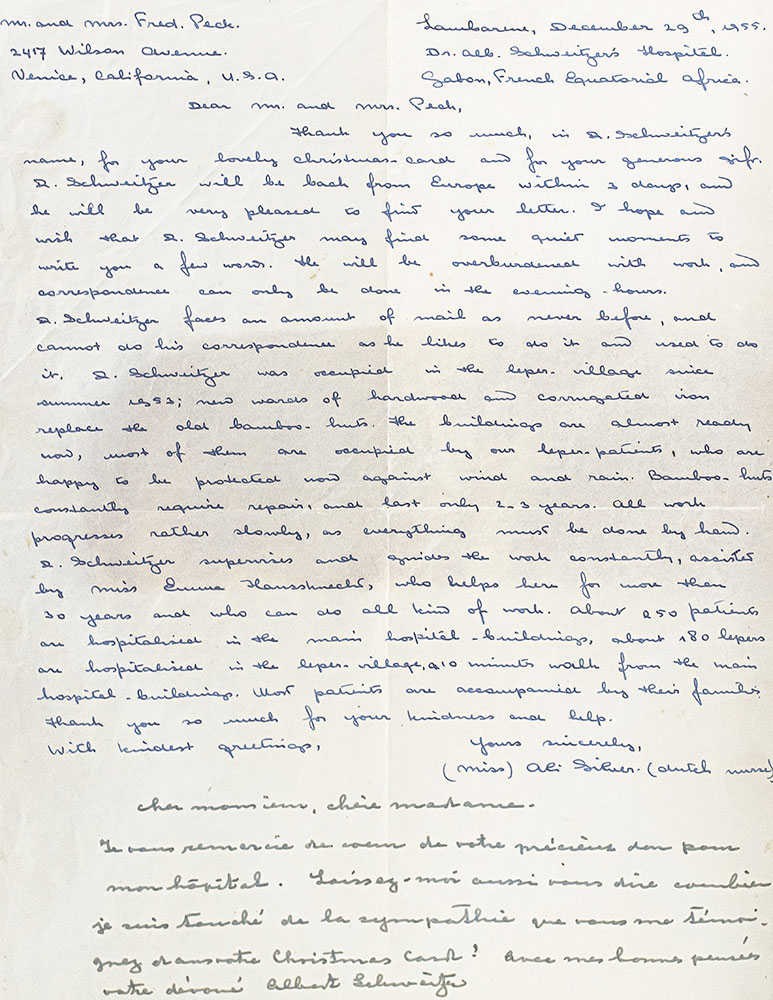 Mr. and Mrs. Fred. Peck.
2417 Wilson Avenue.
Venice, California, U.S.A.
Lambarene, December 29th, 1955.
Dr. Alb. Schweitzer's Hospital.
Gabon, French Equatorial Africa.
Dear Mr. and Mrs. Peck,
Thank you so much, in Dr. Schweitzer's
name, for your lovely Christmas-card and for your generous gift.
Dr. Schweitzer will be back from Europe within 3 days, and
he will be very pleased to find your letter. I hope and
wish that Dr. Schweitzer may find some quiet moments to
write you a few words. He will be overburdened with work, and
correspondence can only be done in the evening-hours.
Dr. Schweitzer faces an amount of mail as never before, and
cannot do his correspondence as he likes to do it and used to do
it. Dr. Schweitzer was occupied in the leper-village since
summer 1953; new wards of hardwood and corrugated iron
replace the old bamboo-huts. The buildings are almost ready
now, most of them are occupied by our leper-patients, who are
happy to be protected now against wind and rain. Bamboo-huts
constantly require repair, and last only 2-3 years. All work
progresses rather slowly, as everything must be done by hand.
Dr. Schweitzer supervises and guides the work constantly, assisted
by Miss Emma Haussknecht, who helps here for more than
30 years and who can do all kind of work. About 250 patients
are hospitalised in the main hospital-buildings, about 180 lepers
are hospitalised in the leper-village, a 10 minutes walk from the main
hospital-buildings. Most patients are accompanied by their families.
Thank you so much for your kindness and help.
With kindest greetings,
Yours sincerely,
(Miss) Ali Silver. (dutch nurse)
Cher monsieur, chère madame.
Je vous remercie de coeur de votre précieux don pour
mon hôpital. Laissez-moi aussi vous dire combien
je suis touché de la sympathie que vous me témoi-
gnez dans votre Christmas Card! Avec mes bonnes pensées
votre dévoué Albert Schweitzer